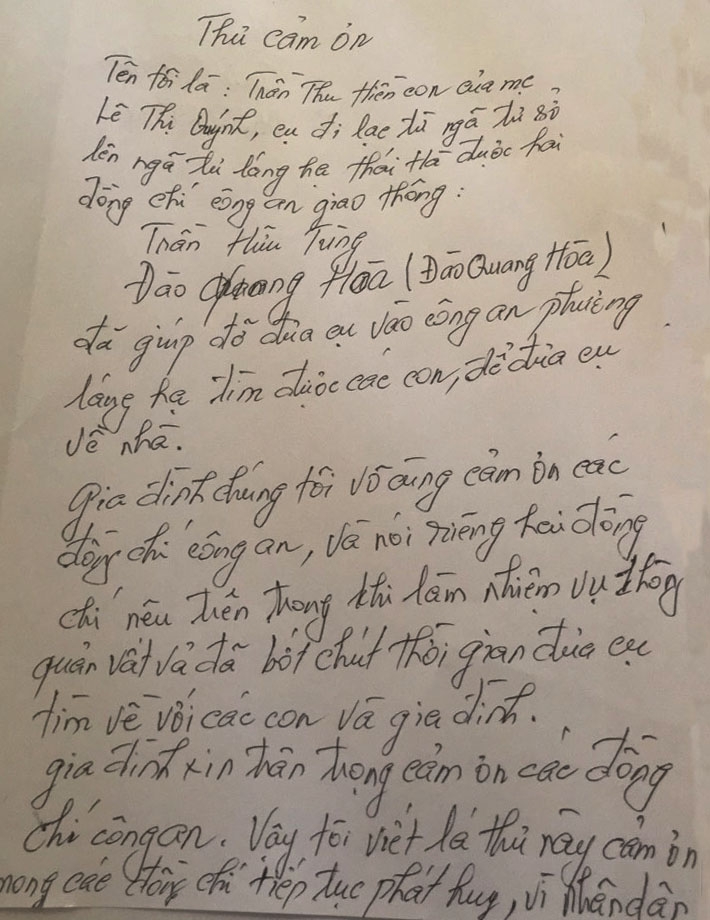 Thư cảm ơn
Tên tôi là: Trần Thu Hiền con của mẹ
Lê Thị Quýnh, cụ đi lạc từ ngã tư sở
lên ngã tư láng hạ thái Hà được hai
đồng chí công an giao thông:
Trần Hữu Tùng
Đào Quang Hòa (Đào Quang Hòa)
đã giúp đỡ đưa cụ vào công an phường
láng hạ tìm được các con, để đưa cụ
về nhà.
Gia đình chúng tôi vô cùng cảm ơn các
đồng chí công an, và nói riêng hai đồng
chí nêu trên trong khi làm nhiệm vụ không
quản vất vả đã bớt chút thời gian đưa cụ
tìm về với các con và gia đình.
gia đình xin trân trọng cảm ơn các đồng
chí công an. Vậy tôi viết lá thư này cảm ơn
mong các đồng chí tiếp tục phát huy, vì nhân dân